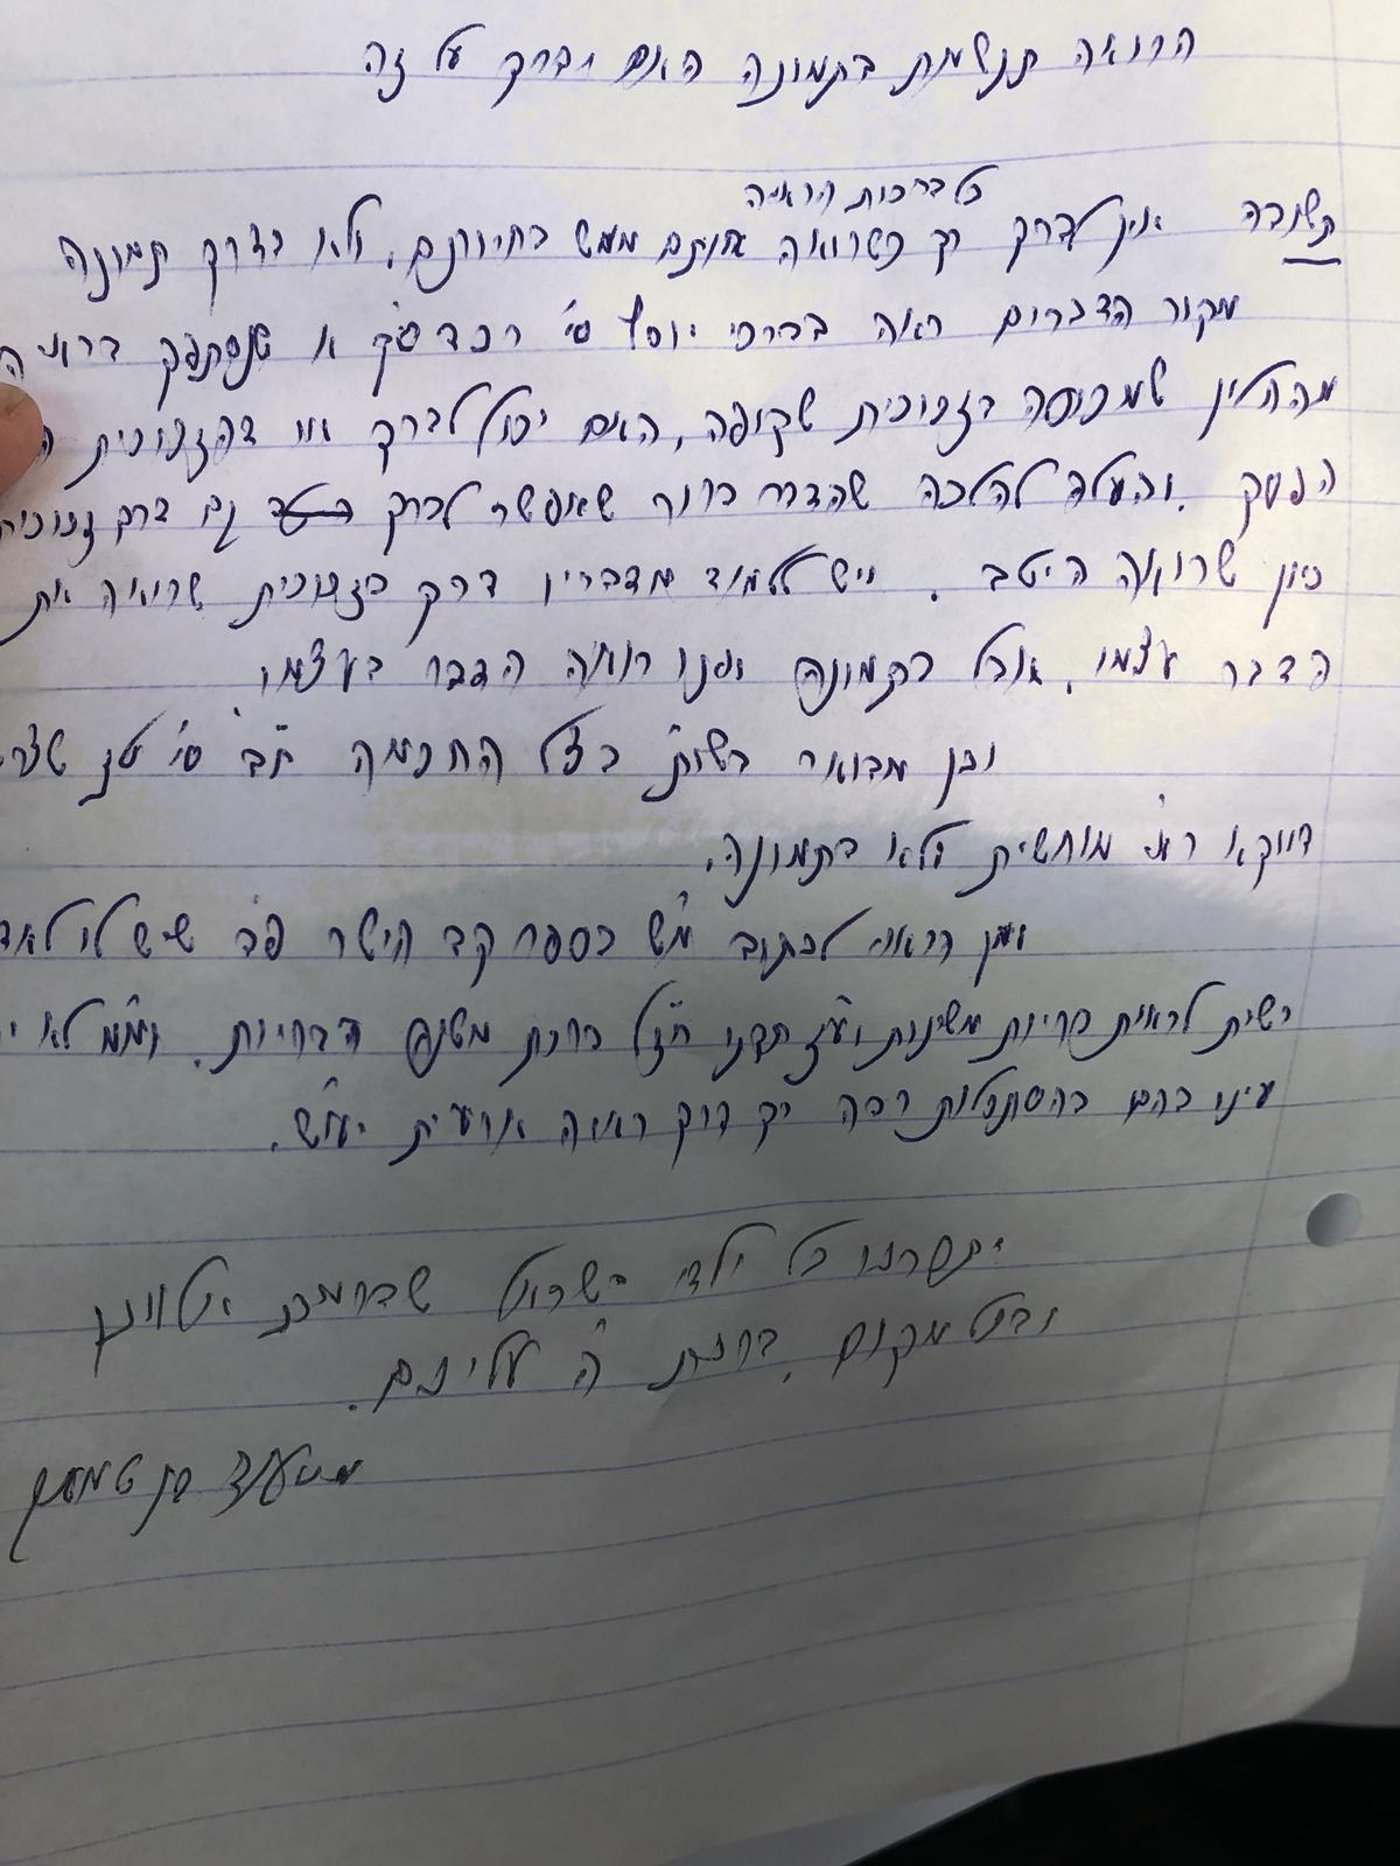 הרואה תנשמת בתמונה האם יברך על זה
כל ברכות הראיה
תשובה אין לברך רק כשרואה אותם ממש בחיותם, ולא בדרך תמונה
מקור הדברים ראה בברכי יוסף סי' רכד סק א שנסתפק בראיה
מהחלון שמכוסה בזכוכית שקופה, האם יכול לברך או דהזכוכית
הפסק. והעלה להלכה שהדבר ברור שאפשר לברך גם דרך זכוכית
כיון שרואה היטב. ויש ללמוד מדבריו דרק בזכוכית שרואה את
הדבר עצמו, אבל בתמונה אינו רואה הדבר בעצמו
וכן מבואר בשו"ת בצל החכמה ח"ב סי'
דווקא ראי' מוחשית ולא בתמונה.
ומן הראוי לכתוב מ"ש בספר קב הישר פ"ב שיש לו
רשות לראות בריות משונות וע"ז תקנו חז"ל ברכת משנה הבריות. ומ"מ לא
עיניו בהם בהסתכלות רבה רק דרך ראיה ארעית יעו"ש.
יתברכו כל ילדי ישראל שברמת
ובכל מקום, ברכת ה' עליכם.